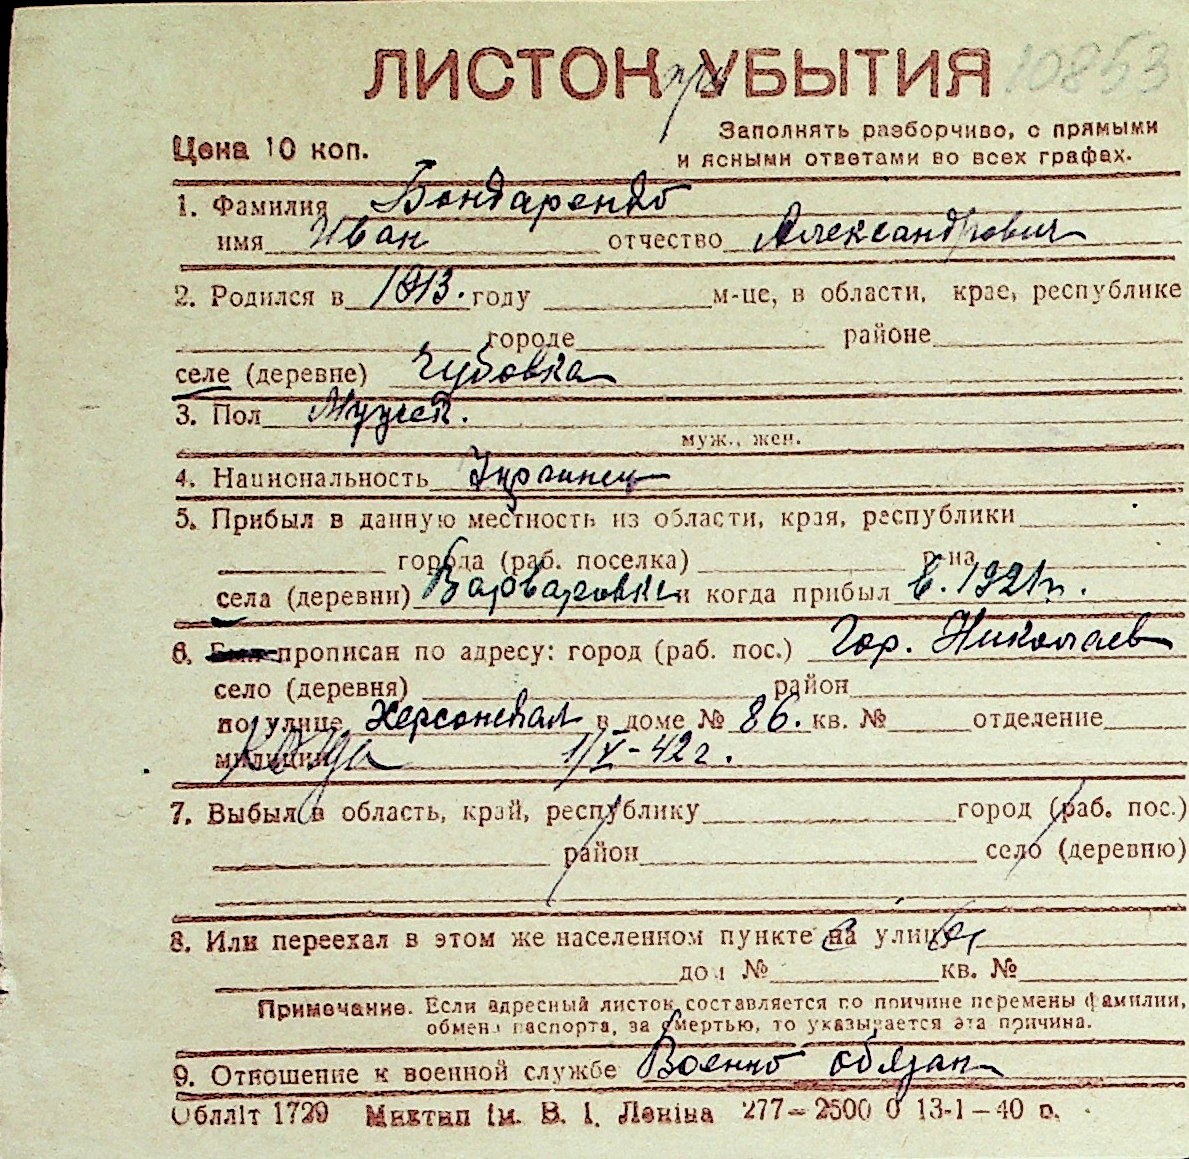 ЛИСТОК при УБЫТИЯ 10853
Цена 10 коп.
Заполнять разборчиво, с прямыми
и ясными ответами во всех графах.
1. Фамилия Бондаренко
имя Иван отчество Александрович
2. Родился в 1913. году м-це, в области, крае, республике
городе районе
селе (деревне) Чубовка
3. Пол Мужск.
муж., жен.
4. Национальность Украинец
5. Прибыл в данную местность из области, края, республики
города (раб. поселка) р-на
села (деревни) Варваровки и когда прибыл в. 1921г.
6. Был прописан по адресу: город (раб. пос.) Гор. Николаев
село (деревня) район
по улице Херсонская в доме № 86. кв. № отделение
милиции когда 1/V-42 г.
7. Выбыл в область, край, республику город (раб. пос.)
район село (деревню)
8. Или переехал в этом же населенном пункте на улицу
дом № кв. №
Примечание. Если адресный листок составляется по причине перемены фамилии,
обмена паспорта, за смертью, то указывается эта причина.
9. Отношение к военной службе Военно обязан
Облліт 1729 Миктип ім. В. І. Леніна 277—2500 0 13-1—40 р.